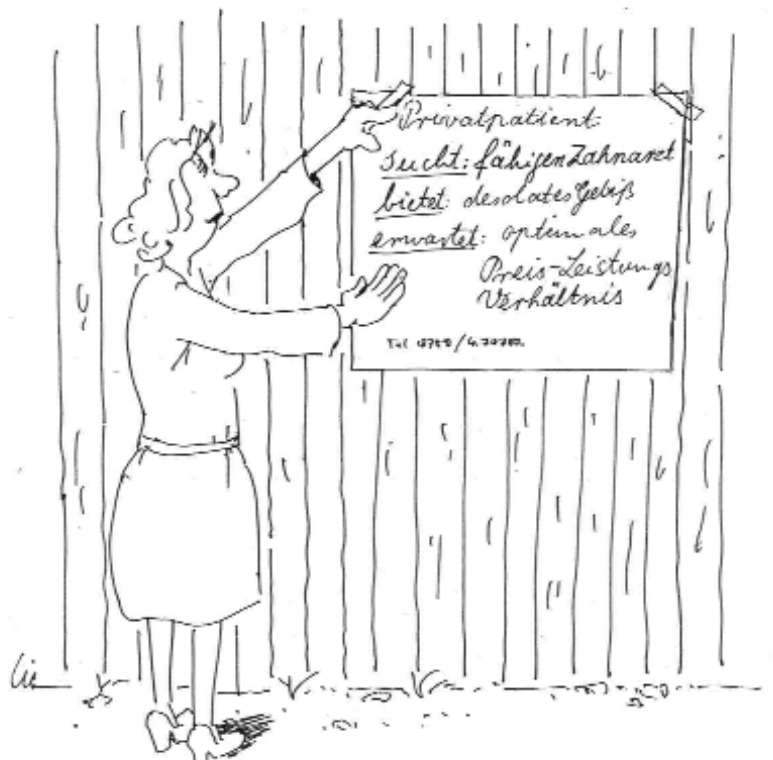 Privatpatient:
sucht: fähigen Zahnarzt
bietet: desolates Gebiß
erwartet: optimales
Preis-Leistungs
Verhältnis
Tel